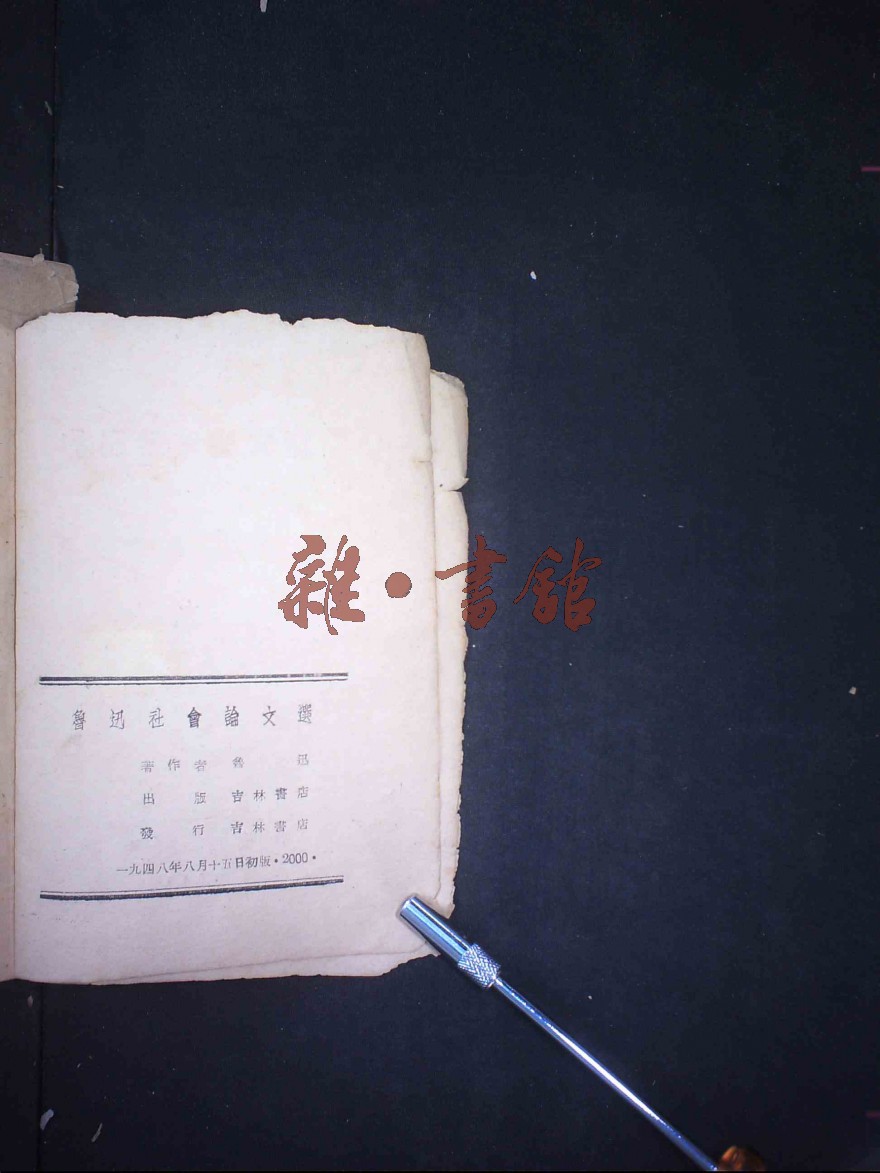 雜·書館
魯迅社會論文選
著作者 魯迅
出版 吉林書店
發行 吉林書店
一九四八年八月十五日初版·2000·